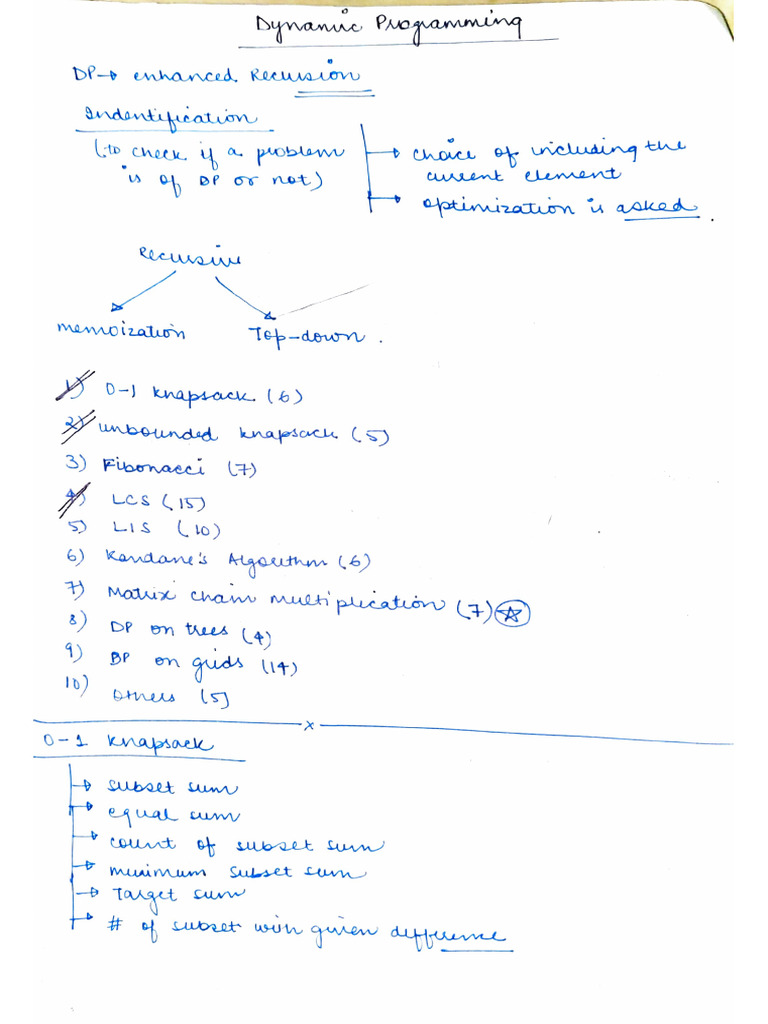 Dynamic Programming
DP→ enhanced Recursion
Indentification
(to check if a problem
is of DP or not)
→ choice of including the
current element
→ optimization is asked.
Recursive
memoization
Top-down.
1) 0-1 knapsack (6)
2) unbounded knapsack (5)
3) Fibonacci (7)
4) LCS (15)
5) LIS (10)
6) Kandane's Algorithm (6)
7) Matrix chain multiplication (7) ☆
8) DP on trees (4)
9) DP on grids (14)
10) Others (5)
x
0-1 knapsack
→ subset sum
→ equal sum
→ count of subset sum
→ minimum subset sum
→ Target sum
→ # of subset with given difference